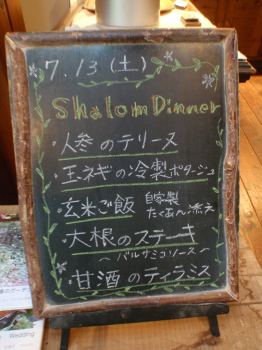 7.13(土)
Shalom Dinner
・人参のテリーヌ
・玉ネギの冷製ポタージュ
・玄米ご飯 自家製
たくあん添え
・大根のステーキ
〜バルサミコソース〜
・甘酒のティラミス
Wedding